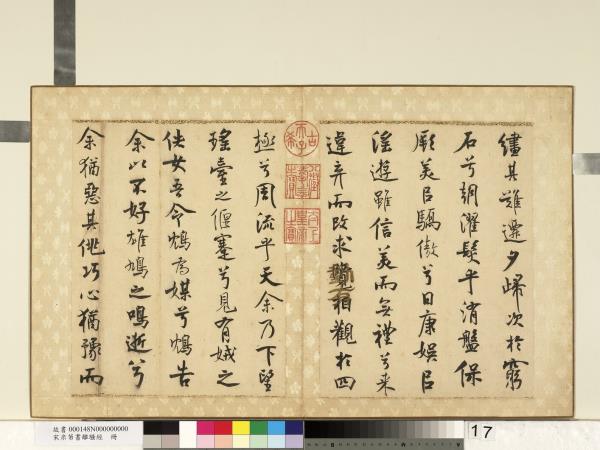 繣其難遷夕歸次於窮
石兮朝濯髮乎洧盤保
厥美以驕傲兮日康娛以
淫遊雖信美而無禮兮来
違弃而改求覽相觀於四
極兮周流乎天余乃下望
瑤臺之偃蹇兮見有娀之
佚女吾令鴆為媒兮鴆告
余以不好雄鳩之鳴逝兮
余猶惡其佻巧心猶豫而
古希天子
故書 000148N000000000
宋米芾書離騷經 冊
17